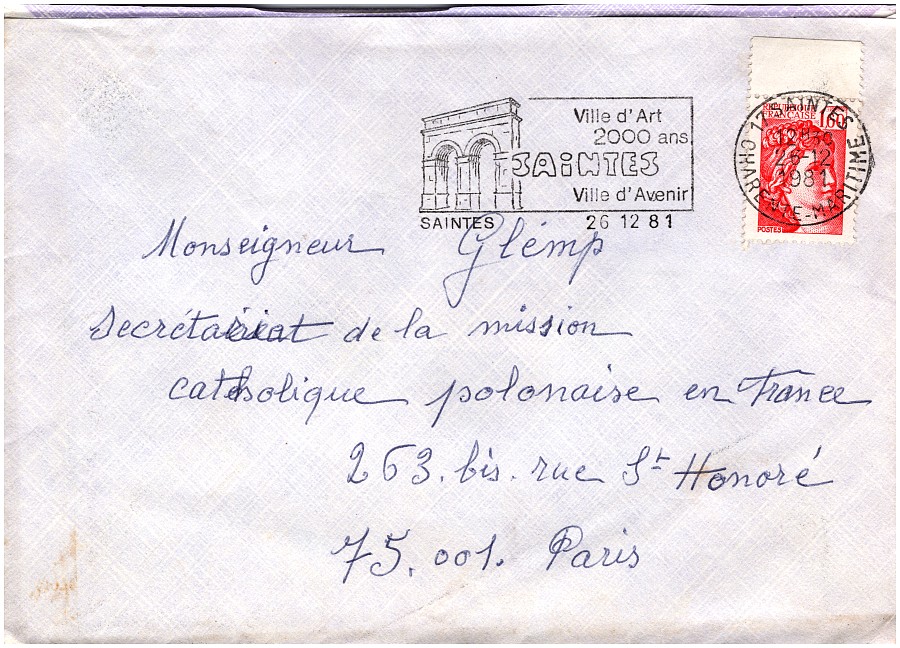 Ville d'Art
2000 ans
SAiNTES
Ville d'Avenir
SAINTES
26 12 81
REPUBLIQUE
FRANCAISE
1,60
POSTES
17 SAINTES
12H
26-12
1981
CHARENTE-MARITIME
Monseigneur Glémp
Secrétariat de la mission
catholique polonaise en France
263. bis. rue St Honoré
75.001. Paris